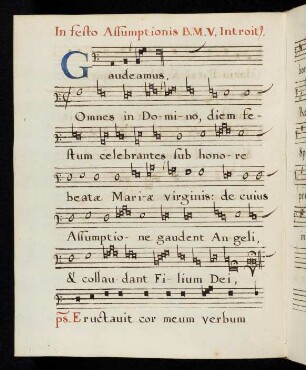 In festo Assumptionis B.M.V. Introit9.
Gaudeamus,
Omnes in Do-mi-nó, diem fe-
stum celebrantes sub hono-re
beatæ Mari-æ virginis: de cuius
Assumptio-ne gaudent An geli,
& collau-dant Fi-lium Dei,
ps. Eructauit cor meum verbum